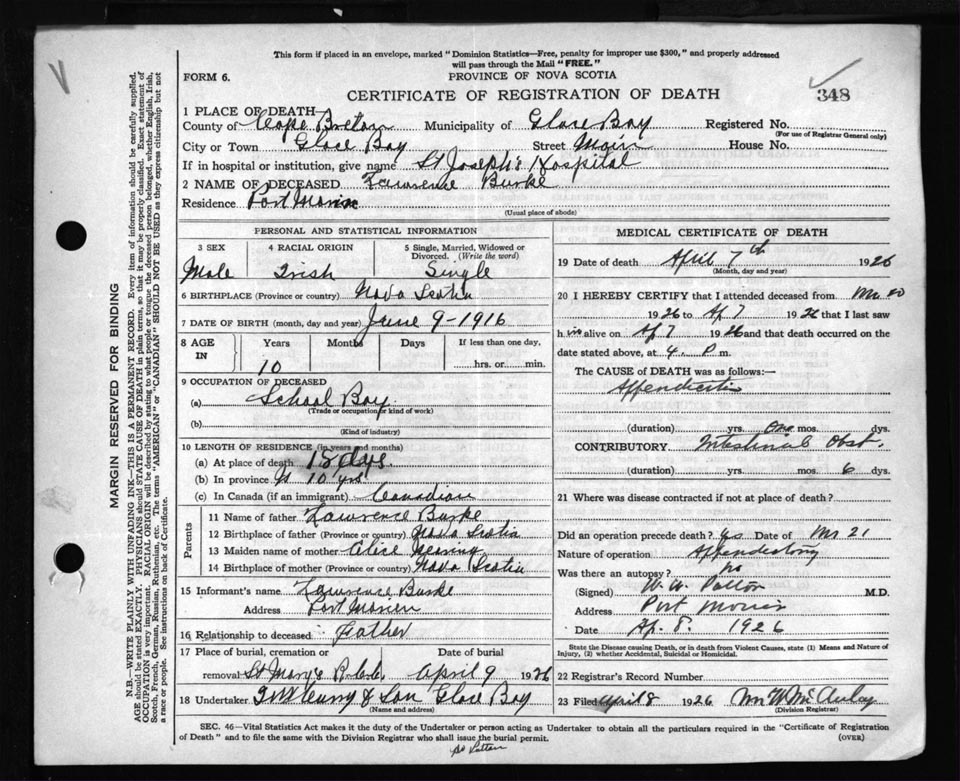 This form if placed in an envelope, marked "Dominion Statistics—Free, penalty for improper use $300," and properly addressed
will pass through the Mail "FREE."
FORM 6.
PROVINCE OF NOVA SCOTIA
CERTIFICATE OF REGISTRATION OF DEATH
348
1 PLACE OF DEATH
County of Cape Breton Municipality of Glace Bay Registered No.
(For use of Registrar General only)
City or Town Glace Bay Street Main House No.
If in hospital or institution, give name St Joseph's Hospital
2 NAME OF DECEASED Lawrence Burke
Residence Port Morien
(Usual place of abode)
PERSONAL AND STATISTICAL INFORMATION
3 SEX 4 RACIAL ORIGIN 5 Single, Married, Widowed or Divorced. (Write the word)
Male Irish Single
6 BIRTHPLACE (Province or country) Nova Scotia
7 DATE OF BIRTH (month, day and year) June 9-1916
8 AGE IN Years Months Days If less than one day,
10 hrs. or min.
9 OCCUPATION OF DECEASED
(a) School Boy
(Trade or occupation or kind of work)
(b)
(Kind of industry)
10 LENGTH OF RESIDENCE (in years and months)
(a) At place of death 18 dys.
(b) In province 10 yrs
(c) In Canada (if an immigrant) Canadian
Parents
11 Name of father Lawrence Burke
12 Birthplace of father (Province or country) Nova Scotia
13 Maiden name of mother Alice
14 Birthplace of mother (Province or country) Nova Scotia
15 Informant's name Lawrence Burke
Address Port Morien
16 Relationship to deceased Father
17 Place of burial, cremation or removal Date of burial
St Mary's R.C.C. April 9 1926
18 Undertaker & Son Glace Bay
(Name and address)
MEDICAL CERTIFICATE OF DEATH
19 Date of death April 7th 1926
(Month, day and year)
20 I HEREBY CERTIFY that I attended deceased from Mr 20
1926 to Ap 7 1926 that I last saw
h im alive on Ap 7 1926 and that death occurred on
date stated above, at 4 P m.
The CAUSE of DEATH was as follows:—
Appendicitis
(duration) yrs. One mos. dys.
CONTRIBUTORY Intestinal Obst.
(duration) yrs. mos. 6 dys.
21 Where was disease contracted if not at place of death?
Did an operation precede death? yes Date of Mr 21
Nature of operation Appendectomy
Was there an autopsy? no
(Signed) W. W. Patton M.D.
Address Port Morien
Date Ap. 8. 1926
State the Disease causing Death, or in death from Violent Causes, state (1) Means and Nature of
Injury, (2) whether Accidental, Suicidal or Homicidal.
22 Registrar's Record Number
23 Filed April 8 1926 Wm W McAuley
(Division Registrar)
SEC. 46—Vital Statistics Act makes it the duty of the Undertaker or person acting as Undertaker to obtain all the particulars required in the "Certificate of Registration
of Death" and to file the same with the Division Registrar who shall issue the burial permit. (OVER)
MARGIN RESERVED FOR BINDING
N.B.—WRITE PLAINLY WITH UNFADING INK—THIS IS A PERMANENT RECORD. Every item of information should be carefully supplied.
AGE should be stated EXACTLY. PHYSICIANS should STATE CAUSE OF DEATH in plain terms, so that it may be properly classified. Exact statement of
OCCUPATION is very important. RACIAL ORIGIN will be described by stating to what people or tongue the deceased person belonged, whether English, Irish,
Scotch, French, German, Russian, Ruthenian, etc. The terms "AMERICAN" or "CANADIAN" SHOULD NOT BE USED as they express citizenship but not
a race or people. See instructions on back of Certificate.